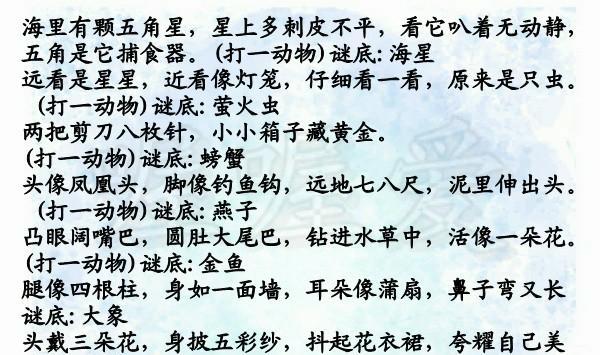 海里有颗五角星，星上多刺皮不平，看它趴着无动静，
五角是它捕食器。(打一动物)谜底:海星
远看是星星，近看像灯笼，仔细看一看，原来是只虫。
(打一动物)谜底:萤火虫
两把剪刀八枚针，小小箱子藏黄金。
(打一动物)谜底:螃蟹
头像凤凰头，脚像钓鱼钩，远地七八尺，泥里伸出头。
(打一动物)谜底:燕子
凸眼阔嘴巴，圆肚大尾巴，钻进水草中，活像一朵花。
(打一动物)谜底:金鱼
腿像四根柱，身如一面墙，耳朵像蒲扇，鼻子弯又长
谜底:大象
头戴三朵花，身披五彩纱，抖起花衣裙，夸耀自己美